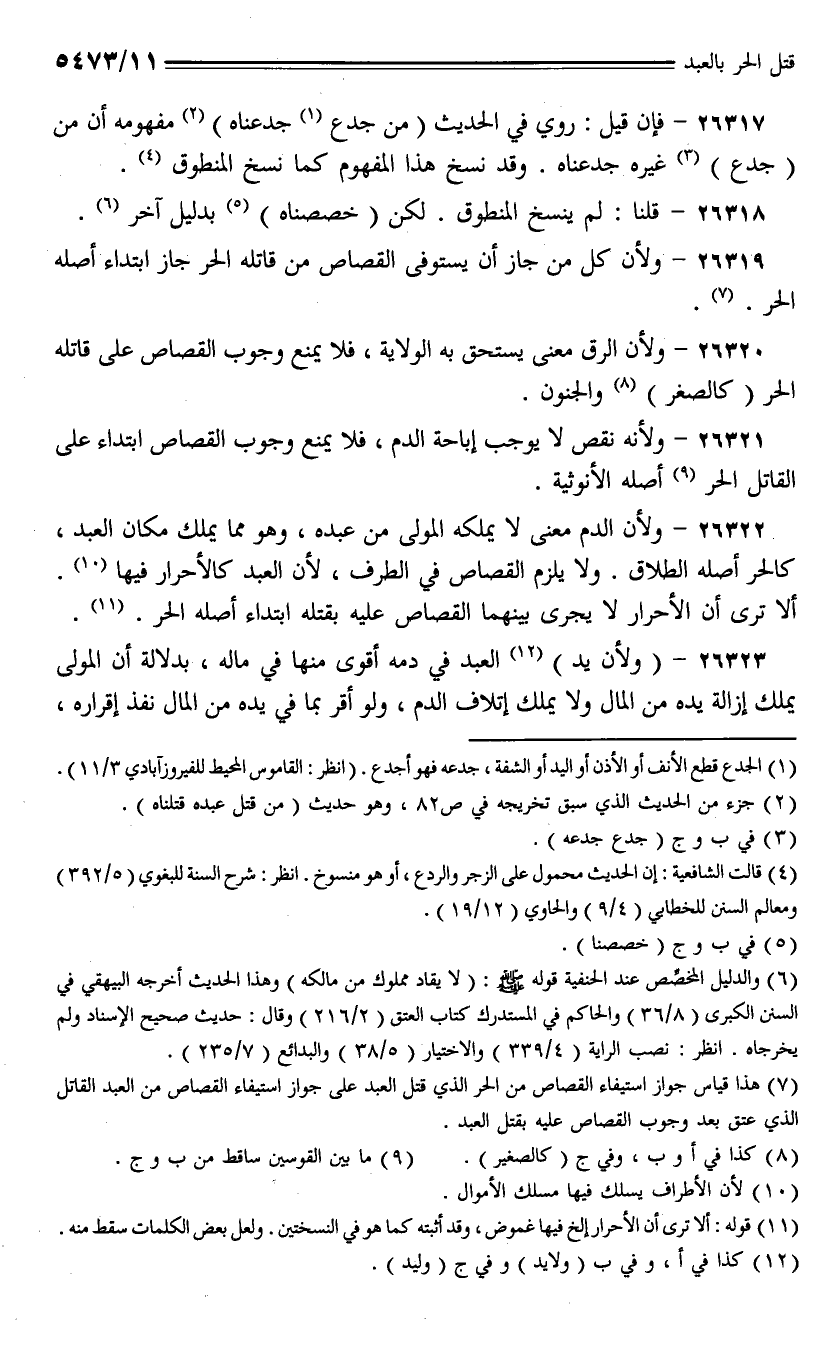 قتل الحر بالعبد ٥٤٧٣/١١
٢٦٣١٧ - فإن قيل : روي في الحديث ( من جدع (١) جدعناه ) (٢) مفهومه أن من
( جدع ) (٣) غيره جدعناه . وقد نسخ هذا المفهوم كما نسخ المنطوق (٤) .
٢٦٣١٨ - قلنا : لم ينسخ المنطوق . لكن ( خصصناه ) (٥) بدليل آخر (٦) .
٢٦٣١٩ - ولأن كل من جاز أن يستوفى القصاص من قاتله الحر جاز ابتداء أصله
الحر . (٧) .
٢٦٣٢٠ - ولأن الرق معنى يستحق به الولاية ، فلا يمنع وجوب القصاص على قاتله
الحر ( كالصغر ) (٨) والجنون .
٢٦٣٢١ - ولأنه نقص لا يوجب إباحة الدم ، فلا يمنع وجوب القصاص ابتداء على
القاتل الحر (٩) أصله الأنوثية .
٢٦٣٢٢ - ولأن الدم معنى لا يملكه المولى من عبده ، وهو مما يملك مكان العبد ،
كالحر أصله الطلاق . ولا يلزم القصاص في الطرف ، لأن العبد كالأحرار فيها (١٠) .
ألا ترى أن الأحرار لا يجرى بينهما القصاص عليه بقتله ابتداء أصله الحر . (١١) .
٢٦٣٢٣ - ( ولأن يد ) (١٢) العبد في دمه أقوى منها في ماله ، بدلالة أن المولى
يملك إزالة يده من المال ولا يملك إتلاف الدم ، ولو أقر بما في يده من المال نفذ إقراره ،
(١) الجدع قطع الأنف أو الأذن أو اليد أو الشفة ، جدعه فهو أجدع . ( انظر : القاموس المحيط للفيروزآبادي ١١/٣ ) .
(٢) جزء من الحديث الذي سبق تخريجه في ص٨٢ ، وهو حديث ( من قتل عبده قتلناه ) .
(٣) في ب و ج ( جدع جدعه ) .
(٤) قالت الشافعية : إن الحديث محمول على الزجر والردع ، أو هو منسوخ . انظر : شرح السنة للبغوي ( ٣٩٢/٥ )
ومعالم السنن للخطابي ( ٩/٤ ) والحاوي ( ١٩/١٢ ) .
(٥) في ب و ج ( خصصنا ) .
(٦) والدليل المخصِّص عند الحنفية قوله ﷺ : ( لا يقاد مملوك من مالكه ) وهذا الحديث أخرجه البيهقي في
السنن الكبرى ( ٣٦/٨ ) والحاكم في المستدرك كتاب العتق ( ٢١٦/٢ ) وقال : حديث صحيح الإسناد ولم
يخرجاه . انظر : نصب الراية ( ٣٣٩/٤ ) والاختيار ( ٣٨/٥ ) والبدائع ( ٢٣٥/٧ ) .
(٧) هذا قياس جواز استيفاء القصاص من الحر الذي قتل العبد على جواز استيفاء القصاص من العبد القاتل
الذي عتق بعد وجوب القصاص عليه بقتل العبد .
(٨) كذا في أ و ب ، وفي ج ( كالصغير ) . (٩) ما بين القوسين ساقط من ب و ج .
(١٠) لأن الأطراف يسلك فيها مسلك الأموال .
(١١) قوله : ألا ترى أن الأحرار إلخ فيها غموض ، وقد أثبته كما هو في النسختين . ولعل بعض الكلمات سقط منه .
(١٢) كذا في أ ، و في ب ( ولايد ) و في ج ( وليد ) .